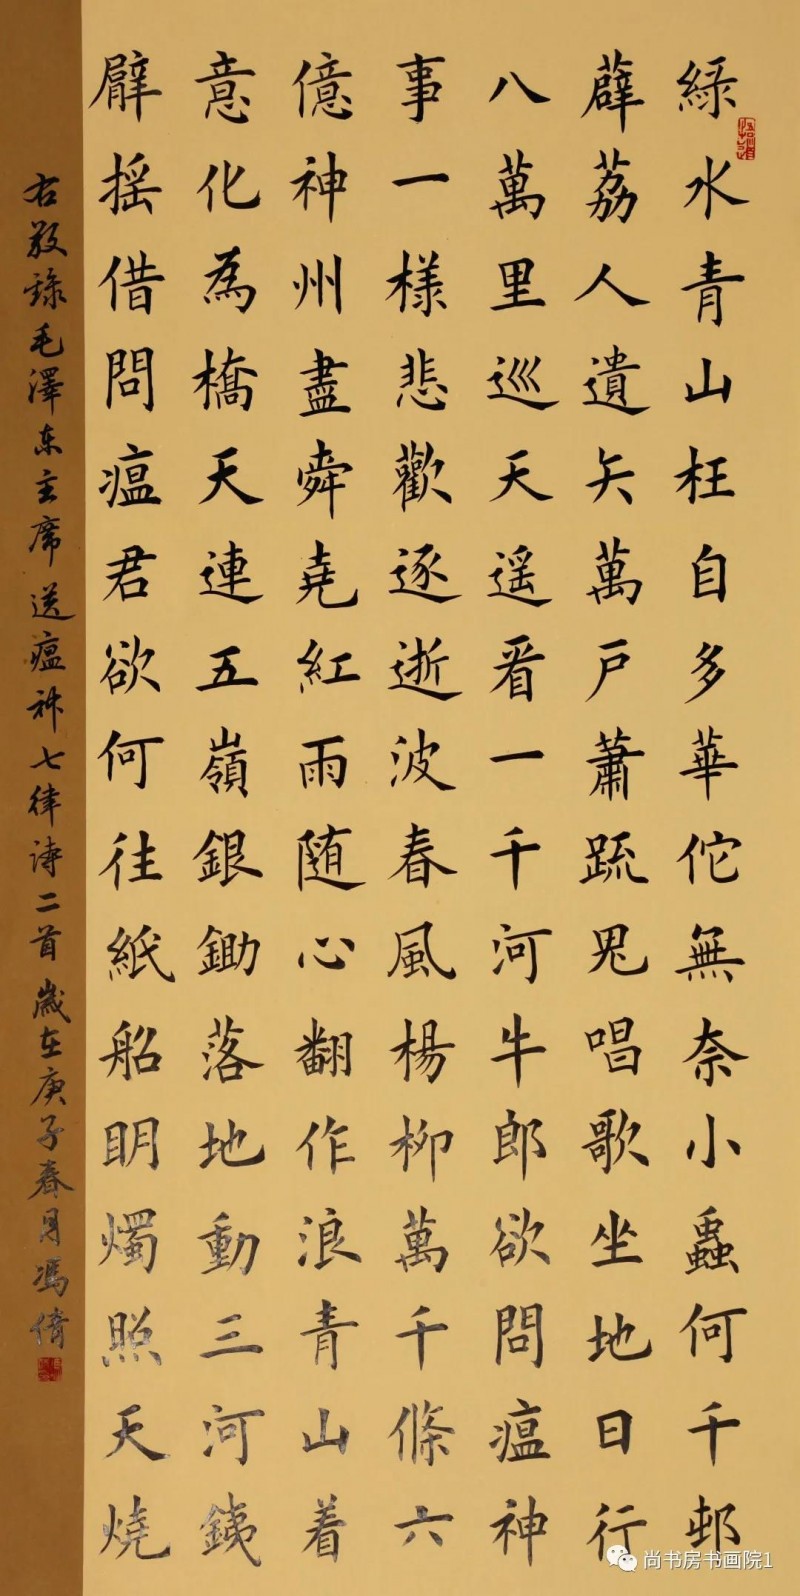 綠水青山枉自多華佗無奈小蟲何千邨
薜荔人遺矢萬戶蕭疏鬼唱歌坐地日行
八萬里巡天遥看一千河牛郎欲問瘟神
事一樣悲歡逐逝波春風楊柳萬千條六
億神州盡舜堯紅雨随心翻作浪青山着
意化為橋天連五嶺銀鋤落地動三河鐵
臂摇借問瘟君欲何往紙船明燭照天燒
右敬錄毛澤东主席送瘟神七律诗二首歲在庚子春月馮倩
尚书房书画院1